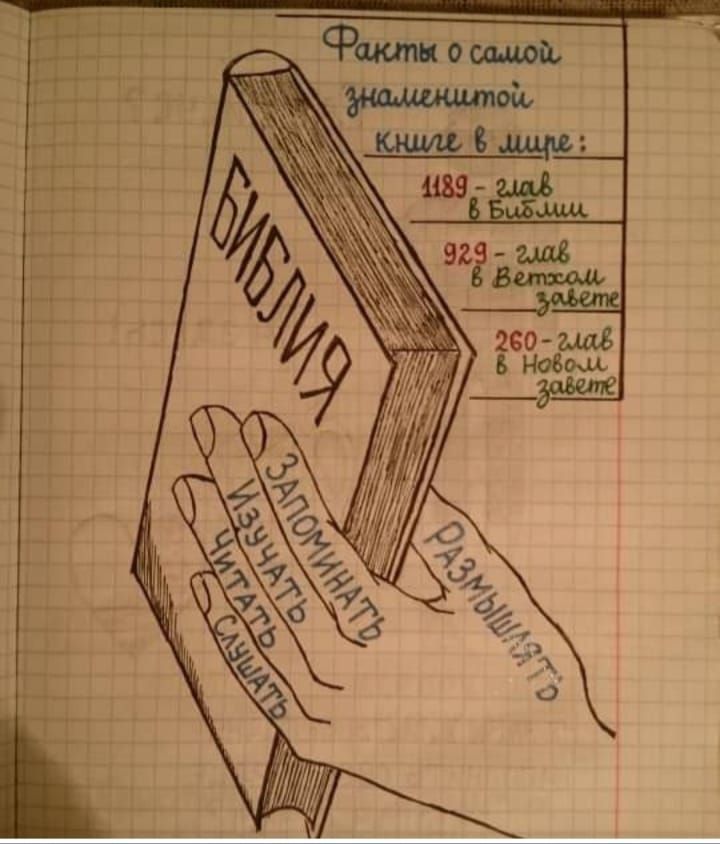 Факты о самой
знаменитой
книге в мире:
1189 - глав
в Библии
929 - глав
в Ветхом
завете
260 - глав
в Новом
завете
БИБЛИЯ
ЗАПОМИНАТЬ
ИЗУЧАТЬ
ЧИТАТЬ
СЛУШАТЬ
РАЗМЫШЛЯТЬ